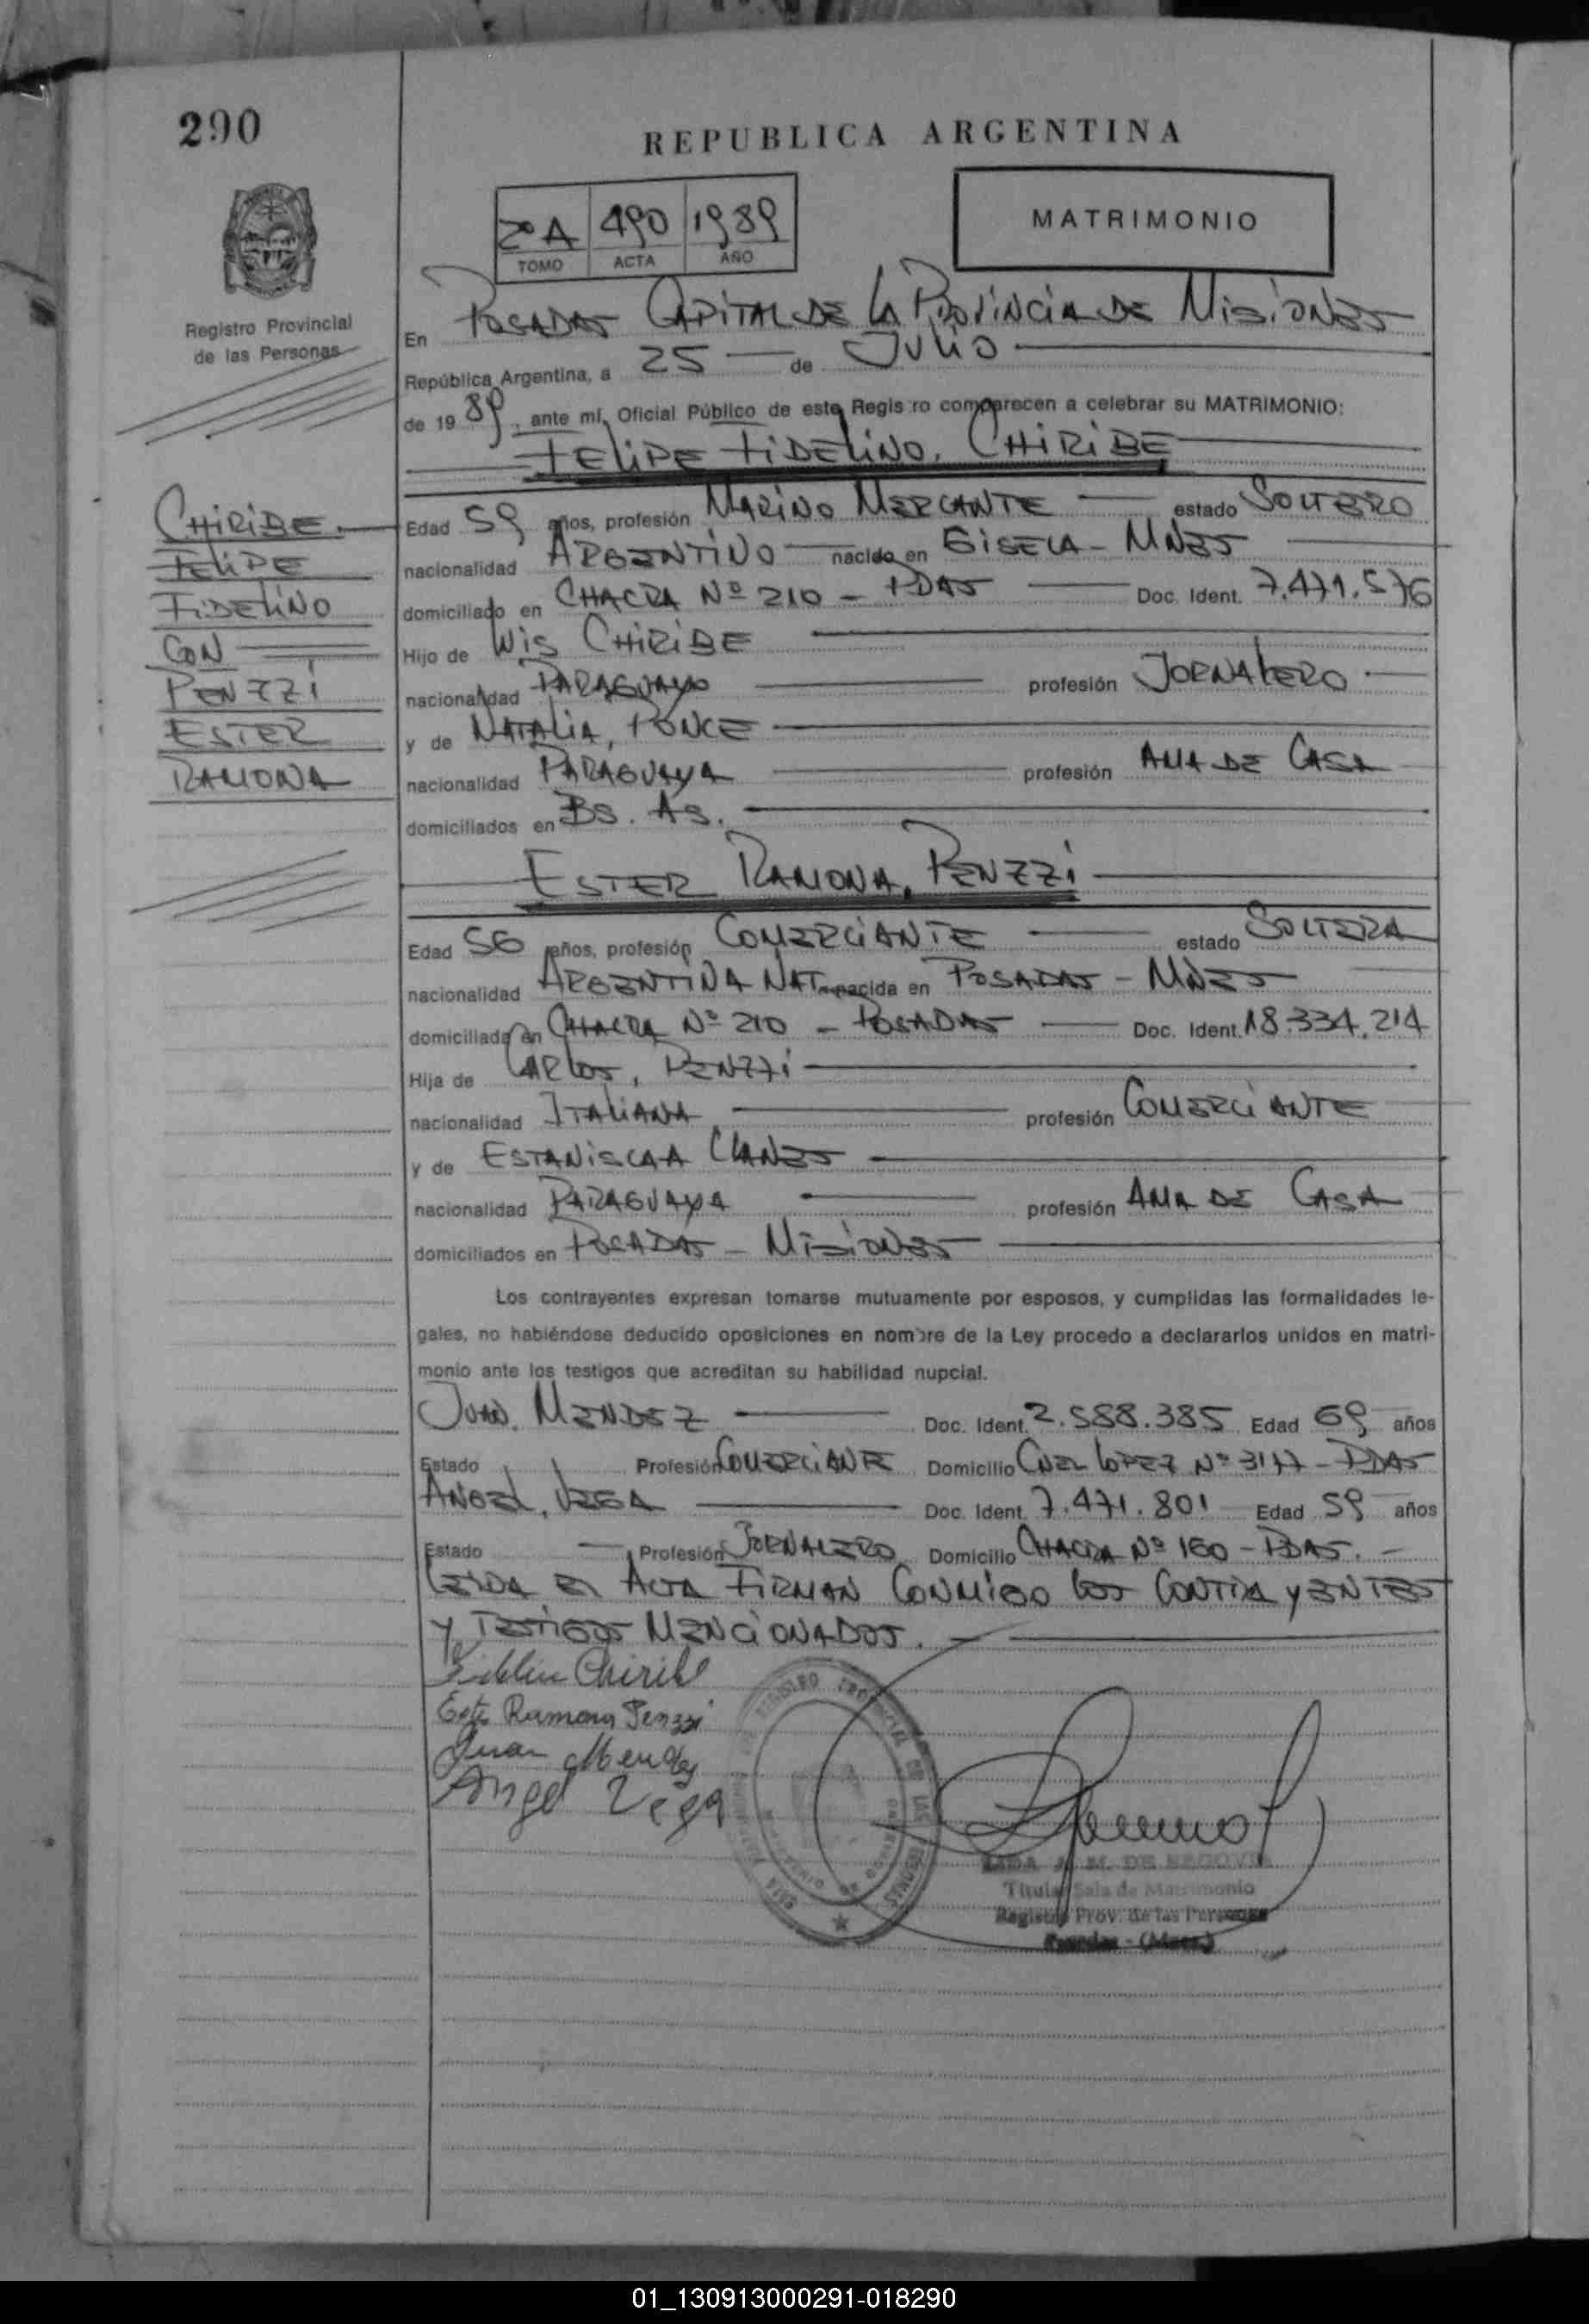 290
REPUBLICA ARGENTINA
2º A 490 1989
TOMO ACTA AÑO
MATRIMONIO
Registro Provincial
de las Personas
En POSADAS CAPITAL DE LA PROVINCIA DE MISIONES
República Argentina, a 25 de JULIO
de 1989, ante mí, Oficial Público de este Registro comparecen a celebrar su MATRIMONIO:
FELIPE FIDELINO, CHIRIBE
CHIRIBE
FELIPE
FIDELINO
CON
PENZZI
ESTER
RAMONA
Edad 59 años, profesión MARINO MERCANTE estado SOLTERO
nacionalidad ARGENTINO nacido en GISELA - MNES
domiciliado en CHACRA Nº 210 - PDAS Doc. Ident. 7.471.576
Hijo de LUIS CHIRIBE
nacionalidad PARAGUAYO profesión JORNALERO
y de NATALIA, PONCE
nacionalidad PARAGUAYA profesión AMA DE CASA
domiciliados en BS. AS.
ESTER RAMONA, PENZZI
Edad 56 años, profesión COMERCIANTE estado SOLTERA
nacionalidad ARGENTINA NAT. nacida en POSADAS - MNES
domiciliada en CHACRA Nº 210 - POSADAS Doc. Ident. 18.334.214
Hija de CARLOS, PENZZI
nacionalidad ITALIANA profesión COMERCIANTE
y de ESTANISLAA LLANES
nacionalidad PARAGUAYA profesión AMA DE CASA
domiciliados en POSADAS - MISIONES
Los contrayentes expresan tomarse mutuamente por esposos, y cumplidas las formalidades le-
gales, no habiéndose deducido oposiciones en nombre de la Ley procedo a declararlos unidos en matri-
monio ante los testigos que acreditan su habilidad nupcial.
JUAN, MENDEZ Doc. Ident. 2.588.385 Edad 69 años
Estado Profesión COMERCIANTE Domicilio CNEL LOPEZ Nº - PDAS
ANGEL, VEGA Doc. Ident. 7.471.801 Edad 59 años
Estado Profesión JORNALERO Domicilio CHACRA Nº 160 - PDAS.
LEIDA EL ACTA FIRMAN CONMIGO LOS CONTRAYENTES
Y TESTIGOS MENCIONADOS.
Fidelin Chiribe
Ester Ramona Penzzi
Juan Mendez
Angel Vega
M. DE SEGOVIA
Titular Sala de Matrimonio
Registro Prov. de las Personas
Posadas - (Mnes.)
01_130913000291-018290